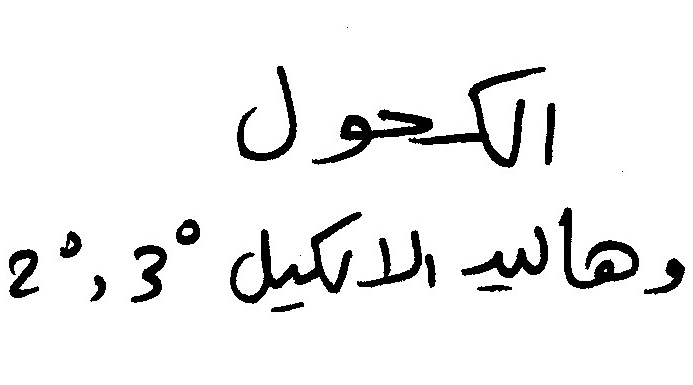 الكحول
وهاليد الالكيل 3°, 2°